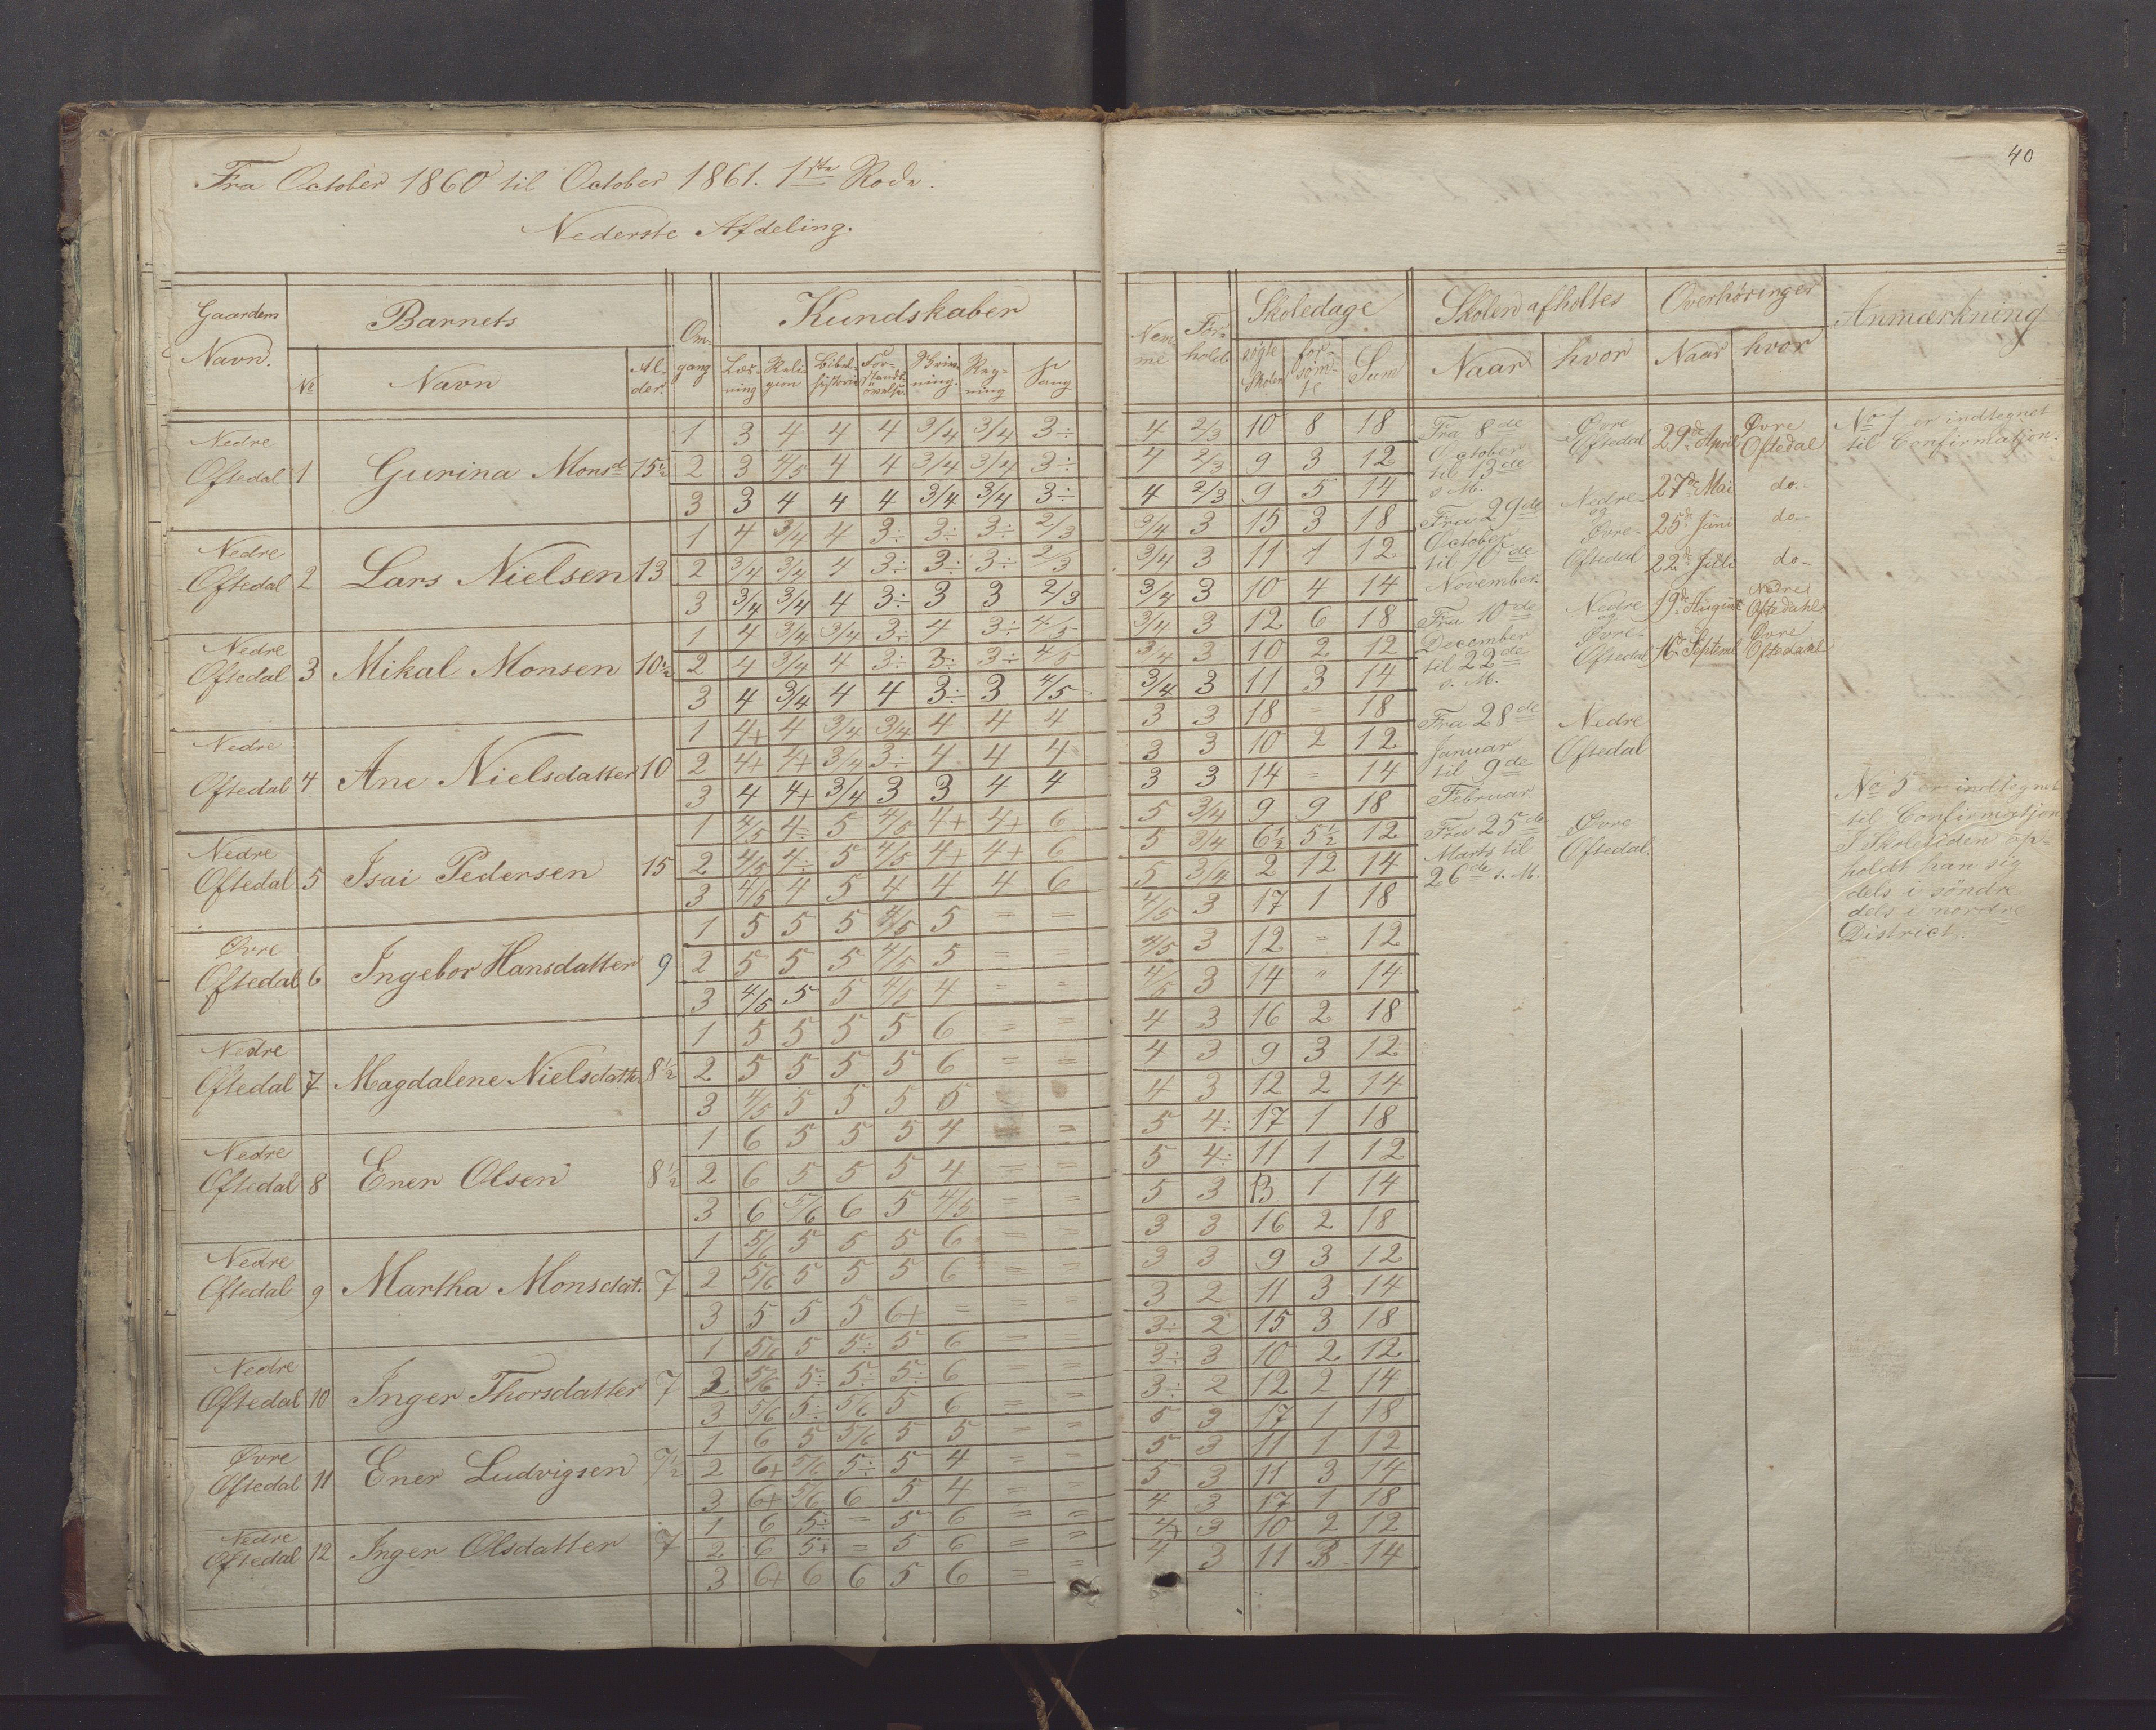 40
Fra October 1860 til October 1861. 1ste Rode.
Nederste Afdeling.
Gaardens Navn. | Barnets | Om-gang | Kundskaber | Nem-me | For-hold | Skoledage | Skolen afholtes | Overhøringer | Anmærkning
No | Navn | Al-der. | Læs-ning | Reli-gion | Bibel-historie | For-stands-øvelse | Skriv-ning. | Reg-ning | Sang | søgte Skolen | for-søm-te | Sum | Naar | hvor | Naar | hvor
Nedre Oftedal 1 Gurina Monsd 15½
1 3 4 4 4 3/4 3/4 3÷ 4 2/3 10 8 18
2 3 4/5 4 4 3/4 3/4 3÷ 4 2/3 9 3 12
3 3 4 4 4 3/4 3/4 3÷ 4 2/3 9 5 14
Nedre Oftedal 2 Lars Nielsen 13
1 4 3/4 4 3÷ 3÷ 3÷ 2/3 3/4 3 15 3 18
2 3/4 3/4 4 3÷ 3÷ 3÷ 2/3 3/4 3 11 1 12
3 3/4 3/4 4 3÷ 3 3 2/3 3/4 3 10 4 14
Nedre Oftedal 3 Mikal Monsen 10½
1 4 3/4 3/4 3÷ 4 3÷ 4/5 3/4 3 12 6 18
2 4 3/4 4 3÷ 3÷ 3÷ 4/5 3/4 3 10 2 12
3 4 3/4 4 4 3÷ 3 4/5 3/4 3 11 3 14
Nedre Oftedal 4 Ane Nielsdatter 10
1 4+ 4 3/4 3/4 4 4 4 3 3 18 = 18
2 4+ 4+ 3/4 3÷ 4 4 4 3 3 10 2 12
3 4 4+ 3/4 3 3 4 4 3 3 14 = 14
Nedre Oftedal 5 Isai Pedersen 15
1 4/5 4÷ 5 4/5 4+ 4+ 6 5 3/4 9 9 18
2 4/5 4÷ 5 4/5 4+ 4+ 6 5 3/4 6½ 5½ 12
3 4/5 4 5 4 4 4 6 5 3/4 2 12 14
Øvre Oftedal 6 Ingebor Hansdatter 9
1 5 5 5 4/5 5 = = 4/5 3 17 1 18
2 5 5 5 4/5 5 = = 4/5 3 12 = 12
3 4/5 5 5 4/5 4 = = 4/5 3 14 " 14
Nedre Oftedal 7 Magdalene Nielsdatter 8½
1 5 5 5 5 6 = = 4 3 16 2 18
2 5 5 5 5 6 = = 4 3 9 3 12
3 4/5 5 5 5 5 4 3 12 2 14
Nedre Oftedal 8 Ener Olsen 8½
1 6 5 5 5 4 = = 5 4÷ 17 1 18
2 6 5 5 5 4 = = 5 4÷ 11 1 12
3 6 5/6 6 5 4/5 = = 5 3 13 1 14
Nedre Oftedal 9 Martha Monsdat. 7
1 5/6 5 5 5 6 = = 3 3 16 2 18
2 5/6 5 5 5 6 = = 3 3 9 3 12
3 5 5 5 6+ = = = 3 2 11 3 14
Nedre Oftedal 10 Inger Thorsdatter 7
1 5/6 5 5÷ 5 6 = = 3÷ 2 15 3 18
2 5/6 5÷ 5÷ 5÷ 6 = = 3÷ 3 10 2 12
3 5/6 5÷ 5/6 5 6 = = 3÷ 2 12 2 14
Øvre Oftedal 11 Ener Ludvigsen 7½
1 6 5 5/6 5 5 = = 5 3 17 1 18
2 6+ 5/6 5÷ 5 4 = = 5 3 11 1 12
3 6+ 5/6 6 5 4 = = 5 3 11 3 14
Nedre Oftedal 12 Inger Olsdatter 7
1 6 5÷ = 5 6 = = 4 3 17 1 18
2 6 5+ = 5 6 = = 4+ 3 10 2 12
3 6+ 6 6 5 6 = = 4 3 11 3 14
Fra 8de
October
til 13de
s. M.
Fra 29de
October
til 10de
November.
Fra 10de
December
til 22de
s. M.
Fra 28de
Januar
til 9de
Februar
Fra 25de
Marts til
26de s. M.
Øvre
Oftedal
Nedre
og
Øvre
Oftedal
Nedre
og
Øvre
Oftedal
Nedre
Oftedal
Øvre
Oftedal.
29de April Øvre Oftedal
27de Mai do.
25de Juni do
22de Juli do
19de August Nedre Oftedahl
16de Septemb Øvre Oftedahl
No 1 er indtegnet
til Confirmation.
No 5 er indtegnet
til Confirmation
I Skoletiden op-
holdt han sig
dels i söndre
dels i nordre
District.